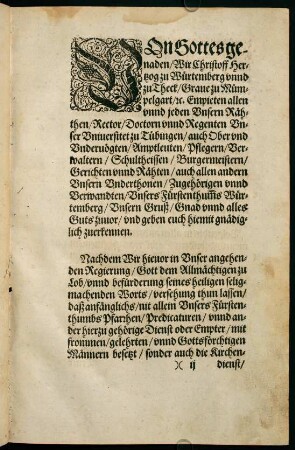 VOn Gottes ge-
naden/ Wir Christoff Her-
tzog zu Würtemberg vnnd
zu Theck/ Graue zu Müm-
pelgart/ ꝛc. Empieten allen
vnnd jeden Vnsern Räh-
ten/ Rector/ Doctorn vnnd Regenten Vn-
ser Vniuersitet zu Tübingen/ auch Ober vnd
Vnderuögten/ Amptleuten/ Pflegern/ Ver-
waltern/ Schultheissen/ Burgermeistern/
Gerichten vnnd Rähten/ auch allen andern
Vnsern Vnderthonen/ Zugehörigen vnnd
Verwandten/ Vnsers Fürstenthumbs Wür-
temberg/ Vnsern Gruß/ Gnad vnnd alles
Guts zuuor/ vnd geben euch hiemit gnädig-
lich zuerkennen.
Nachdem Wir hieuor in Vnser angehen-
den Regierung/ Gott dem Allmächtigen zu
Lob/ vnnd befürderung seines heiligen selig-
machenden Worts/ versehung thun lassen/
daß anfänglichs/ nit allein Vnsers Fürsten-
thumbs Pfarrhen/ Predicaturen/ vnnd an-
der hierzu gehörige Dienst oder Empter/ mit
frommen/ gelehrten/ vnnd Gottsförchtigen
Männern besetzt/ sonder auch die Kirchen-
)( ij dienst/